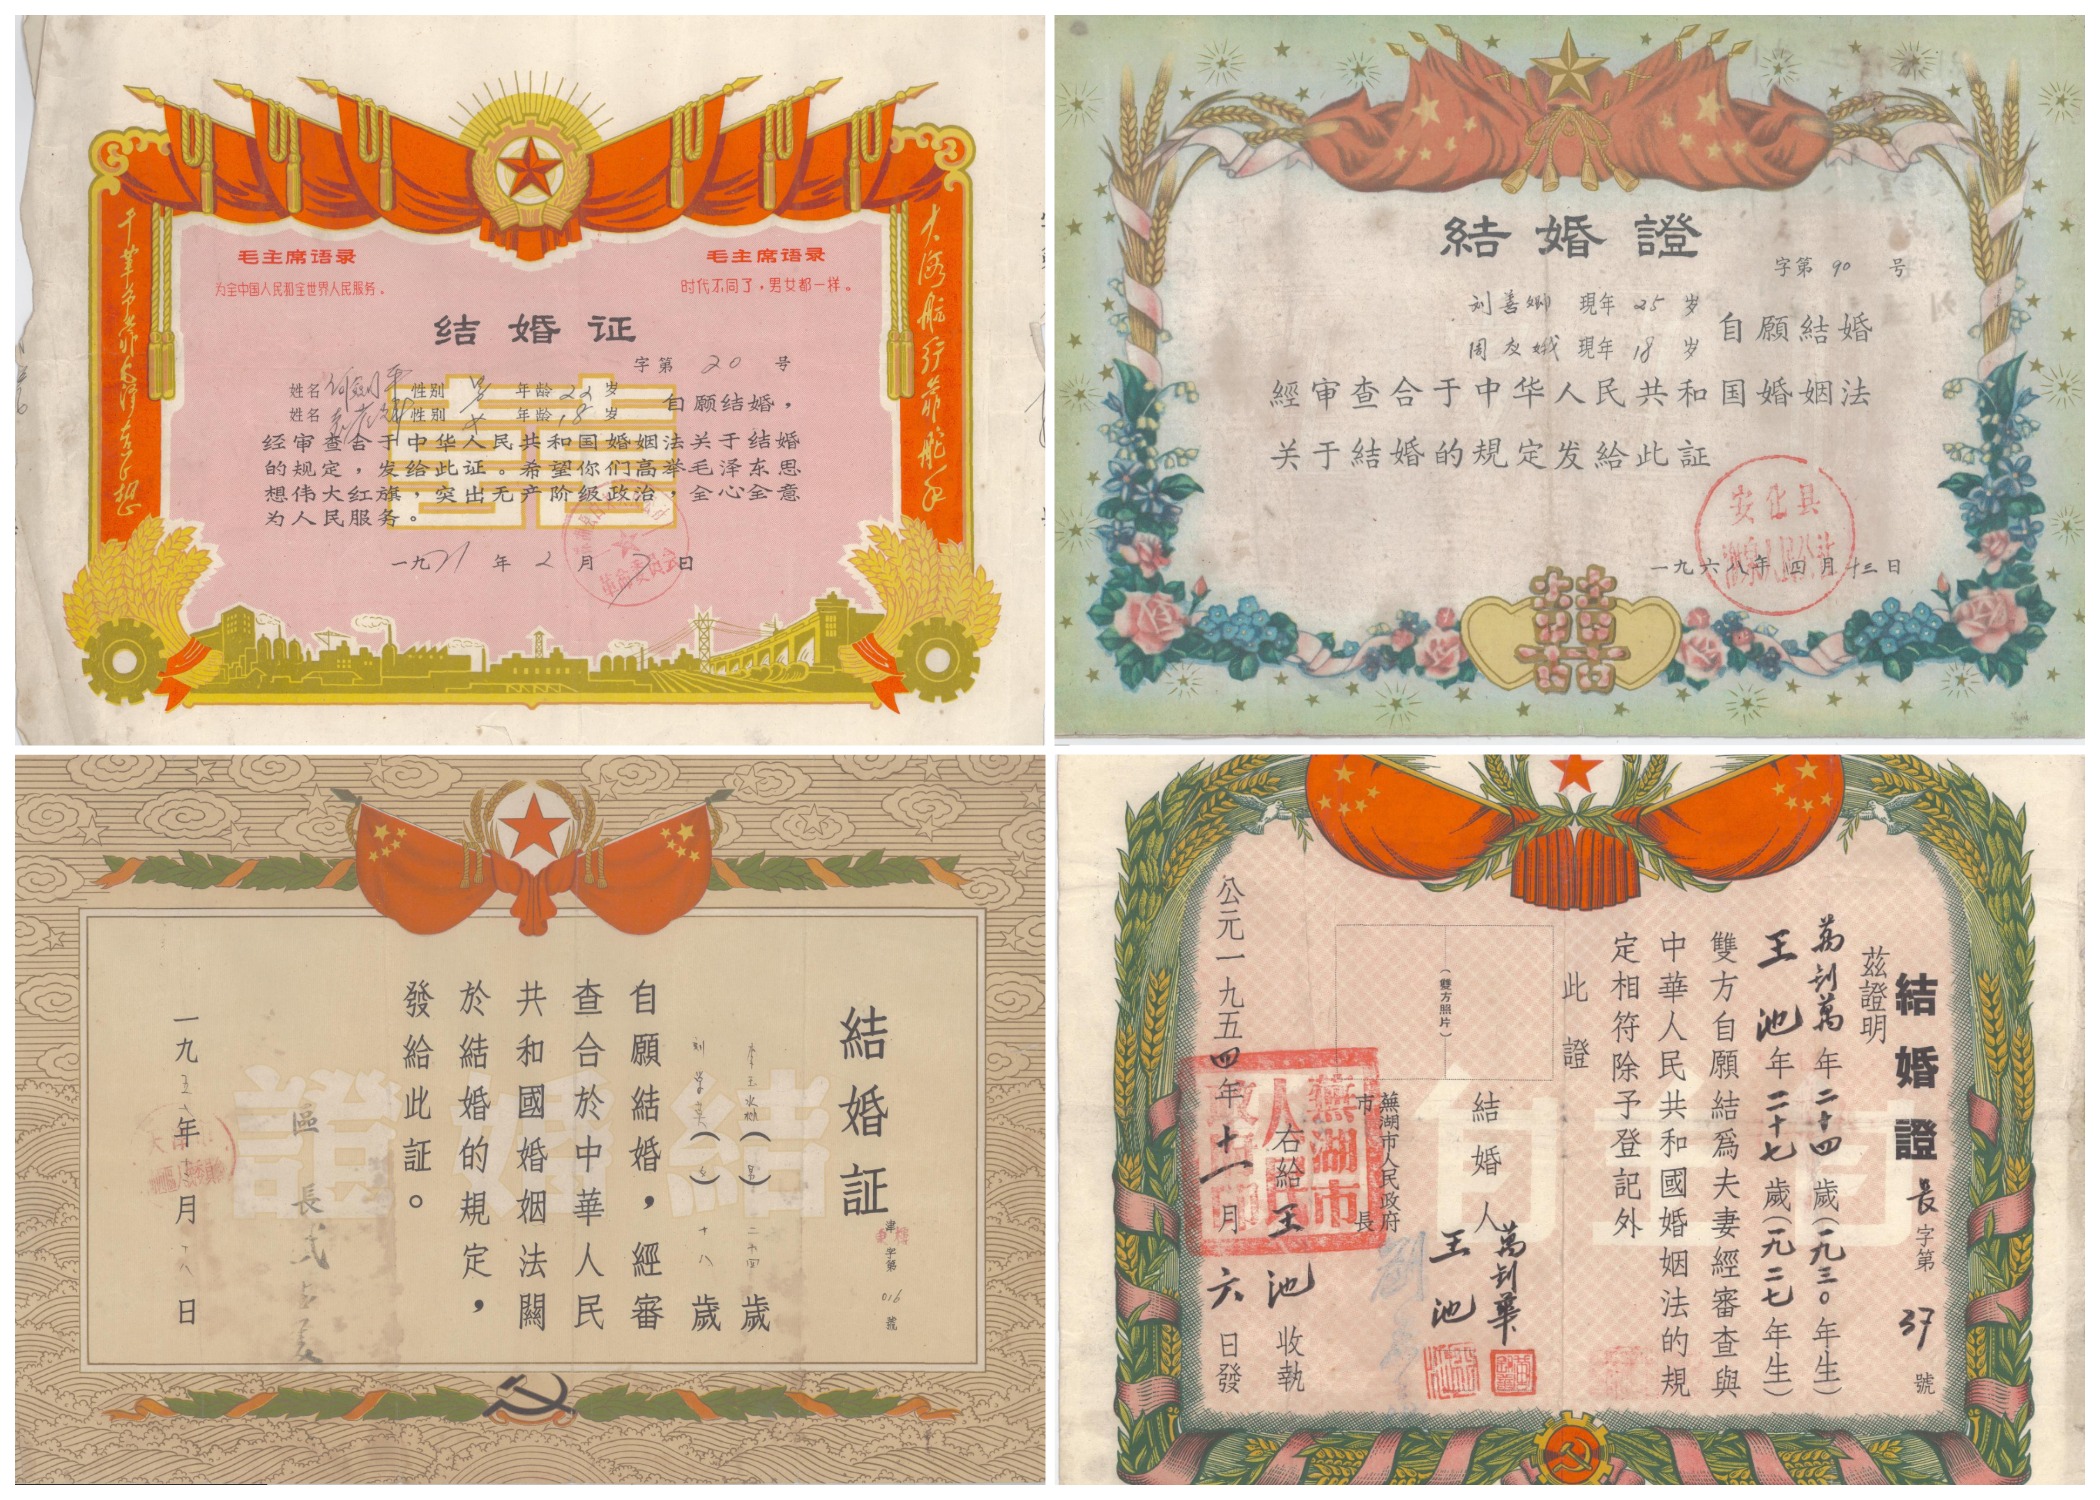 千革命万革命毛泽东思想
大海航行靠舵手
毛主席语录
为全中国人民和全世界人民服务。
毛主席语录
时代不同了，男女都一样。
结婚证
字第 20 号
姓名 性别 男 年龄 22 岁
姓名 性别 女 年龄 18 岁
自愿结婚，
经审查合于中华人民共和国婚姻法关于结婚
的规定，发给此证。希望你们高举毛泽东思
想伟大红旗，突出无产阶级政治，全心全意
为人民服务。
一九71年2月7日
革命委员会
結婚證
字第 90 号
刘善 現年 25 岁
周友娥 現年 18 岁
自願結婚
經审查合于中华人民共和国婚姻法
关于結婚的規定发給此証
安化县
人民公社
一九六八年四月十三日
結婚証
津 字第 016 號
李玉 (男) 二十四歲
刘 (女) 十八歲
自願結婚，經審
查合於中華人民
共和國婚姻法關
於結婚的規定，
發給此証。
區長
一九五 年 月十八日
結婚證
結婚證 長字第 37 號
茲證明
萬釗萬年二十四歲(一九三〇年生)
王池年二十七歲(一九二七年生)
雙方自願結爲夫妻經審查與
中華人民共和國婚姻法的規
定相符除予登記外
此證
(雙方照片)
結婚人
萬釗華
王池
蕪湖市人民政府
市長
劉
右給王池收執
蕪湖市
人民
政府印
公元一九五四年十一月六日發
自主